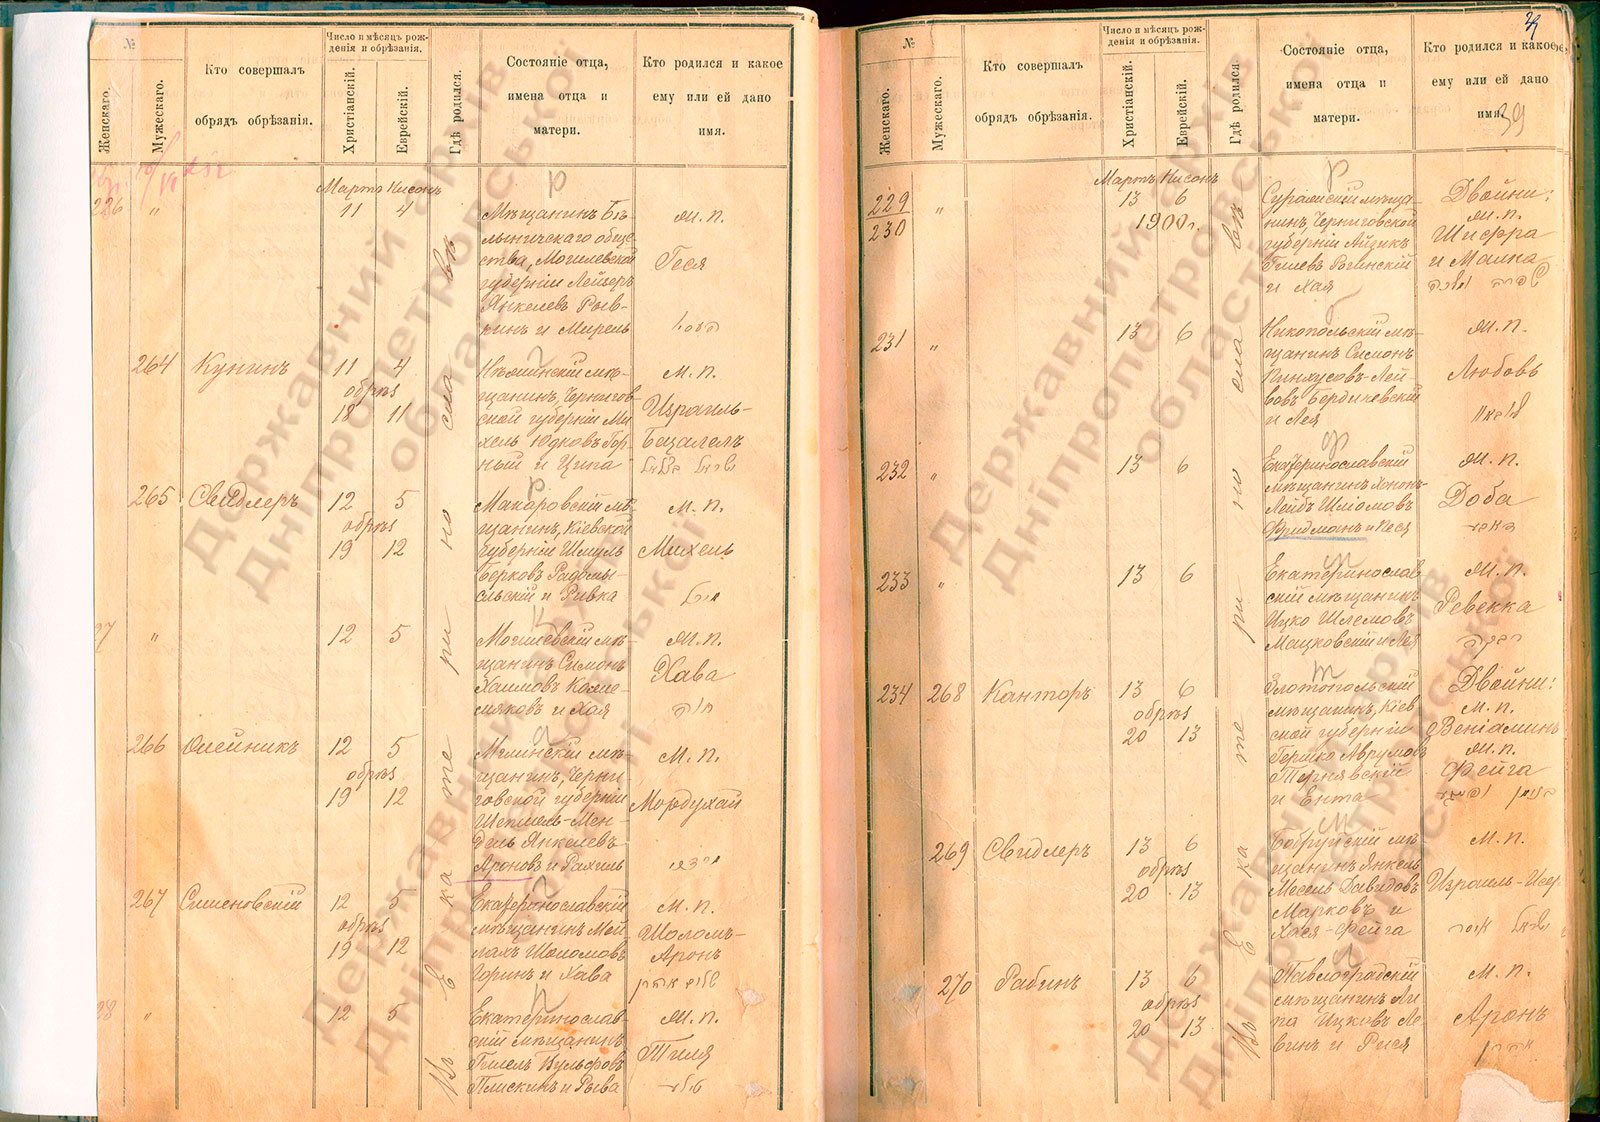 №
Женскаго.
Мужескаго.
Кто совершалъ
обрядъ обрѣзанія.
Число и мѣсяцъ рож-
денія и обрѣзанія.
Христіанскій.
Еврейскій.
Гдѣ родился.
Состояніе отца,
имена отца и
матери.
Кто родился и какое
ему или ей дано
имя.
Мартъ Нисонъ
226 " 11 4
Мѣщанинъ Бѣ-
лыничскаго обще-
ства, Могилевской
губерніи Лейзеръ
Янкелевъ Рыв-
кинъ и Мирель
м. п.
Геся
264 Кунинъ 11 4
обрѣз
18 11
Нѣжинскій мѣ-
щанинъ, Чернигов-
ской губерніи Ми-
хель Юдковъ Гор-
ный и Ципа
м. п.
Израиль-
Бецалелъ
ישראל בצלאל
265 Свидлеръ 12 5
обрѣз
19 12
Макаровскій мѣ-
щанинъ, Кіевской
губерніи Шмуль
Берковъ Радомы-
сльскій и Ривка
м. п.
Михель
מיכל
27 " 12 5
Могилевскій мѣ-
щанинъ Симонъ
Хаимовъ
и Хая
м. п.
Хава
חוה
266 Олейникъ 12 5
обрѣз
19 12
Мглинскій мѣ-
щанинъ, Черни-
говской губерніи
Мен-
дель Янкелевъ
Ароновъ и Рахиль
м. п.
Мордухай
מרדכי
267 Сименовскій 12 5
обрѣз
19 12
Екатеринославскій
мѣщанинъ Мей-
лахъ Шоломовъ
Горинъ и Хава
м. п.
Шоломъ-
Аронъ
שלום אהרן
28 " 12 5
Екатеринослав-
скій мѣщанинъ
Вульфовъ
Плискинъ и Рыва
м. п.
Тиля
טילא
Въ Екатеринославѣ
29
№
Женскаго.
Мужескаго.
Кто совершалъ
обрядъ обрѣзанія.
Число и мѣсяцъ рож-
денія и обрѣзанія.
Христіанскій.
Еврейскій.
Гдѣ родился.
Состояніе отца,
имена отца и
матери.
Кто родился и какое
ему или ей дано
имя.
39
Мартъ Нисонъ
229 " 13 6
230
1900 г.
Суражскій мѣща-
нинъ, Черниговской
губерніи Айзикъ
и Хая
Двойни:
м. п.
Шифра
и Малка
שפרה ומלכה
231 " 13 6
Никопольскій мѣ-
щанинъ Симонъ
Пинхусовъ-Лей-
бовъ Бердичевскій
и Лея
м. п.
Любовь
232 " 13 6
Екатеринославскій
мѣщанинъ Хонон-
Лейбъ Шломовъ
Фридманъ и Песя
м. п.
Доба
233 " 13 6
Екатеринослав
скій мѣщанинъ
Ицко Шлемовъ
Мацковскій и Лея
м. п.
Ревекка
רבקה
234 268 Канторъ 13 6
обрѣз
20 13
Златопольскій
мѣщанинъ, Кіев
ской губерніи
Гершко Аврумовъ
Тернявскій
и Ента
Двойни:
м. п.
Веніаминъ
м. п.
Фейга
בנימין ופייגא
269 Свидлеръ 13 6
обрѣз
20 13
Бобруйскій мѣ-
щанинъ Янкель
Давидовъ
Марковъ и
Хася-Фейга
м. п.
Израиль-Исер
ישראל איסר
270 Рабинъ 13 6
обрѣз
20 13
Павлоградскій
мѣщанинъ Ли-
па Ицковъ Ле-
винъ и Рися
м. п.
Аронъ
אהרן
Въ Екатеринославѣ
Державний архів
Дніпропетровської
області